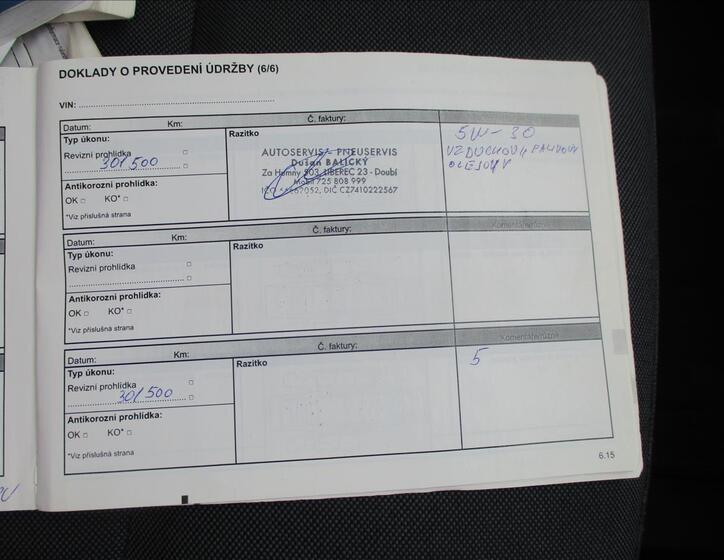 DOKLADY O PROVEDENÍ ÚDRŽBY (6/6)
VIN:
Datum: Km: Č. faktury:
Typ úkonu: Razítko 5W-30
Revizní prohlídka VZDUCHOVÝ, PALIVOVÝ
301/500 OLEJOVÝ
AUTOSERVIS - PNEUSERVIS
Dušan BALICKÝ
Za Humny 503, LIBEREC 23 - Doubí
Mobil 725 808 999
DIČ CZ7410222567
Antikorozní prohlídka:
OK □ KO* □
*Viz příslušná strana
Datum: Km: Č. faktury: Komentáře/různé
Typ úkonu: Razítko
Revizní prohlídka □
□
Antikorozní prohlídka:
OK □ KO* □
*Viz příslušná strana
Datum: Km: Č. faktury: Komentáře/různé
Typ úkonu: Razítko 5
Revizní prohlídka □
301/500 □
Antikorozní prohlídka:
OK □ KO* □
*Viz příslušná strana
6.15